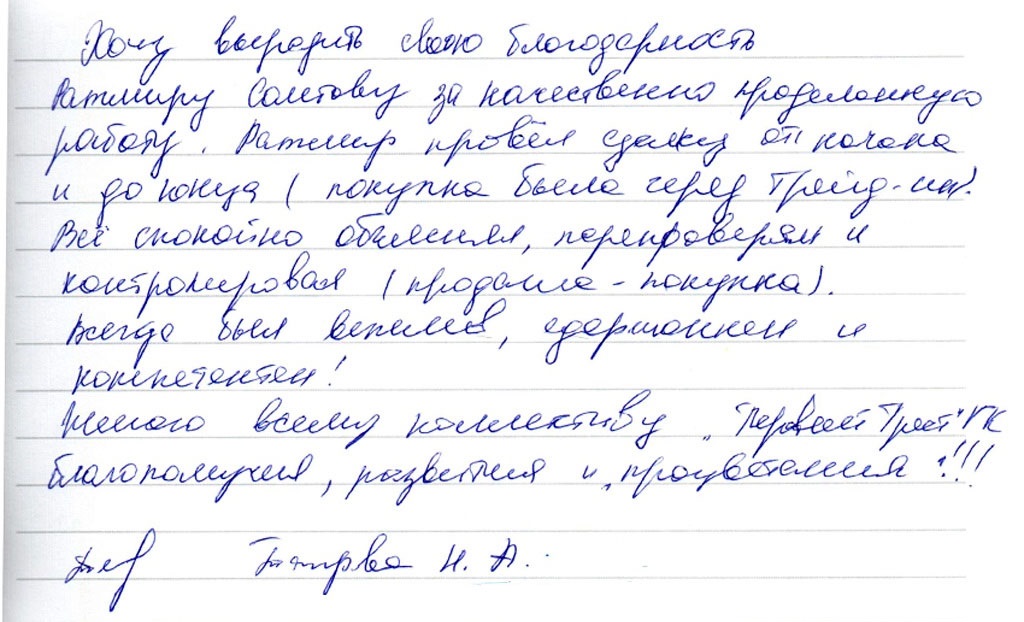 Хочу выразить свою благодарность
Ратмиру Саитову за качественно проделанную
работу. Ратмир провёл сделку от начала
и до конца (покупка была через Трейд-ин).
Всё спокойно объяснил, перепроверял и
контролировал (продажа - покупка).
Всегда был вежлив, сдержаннен и
компетентен!
Желаю всему коллективу "Первый Трест" ГК
благополучия, развития и процветания!!!
Н. А.